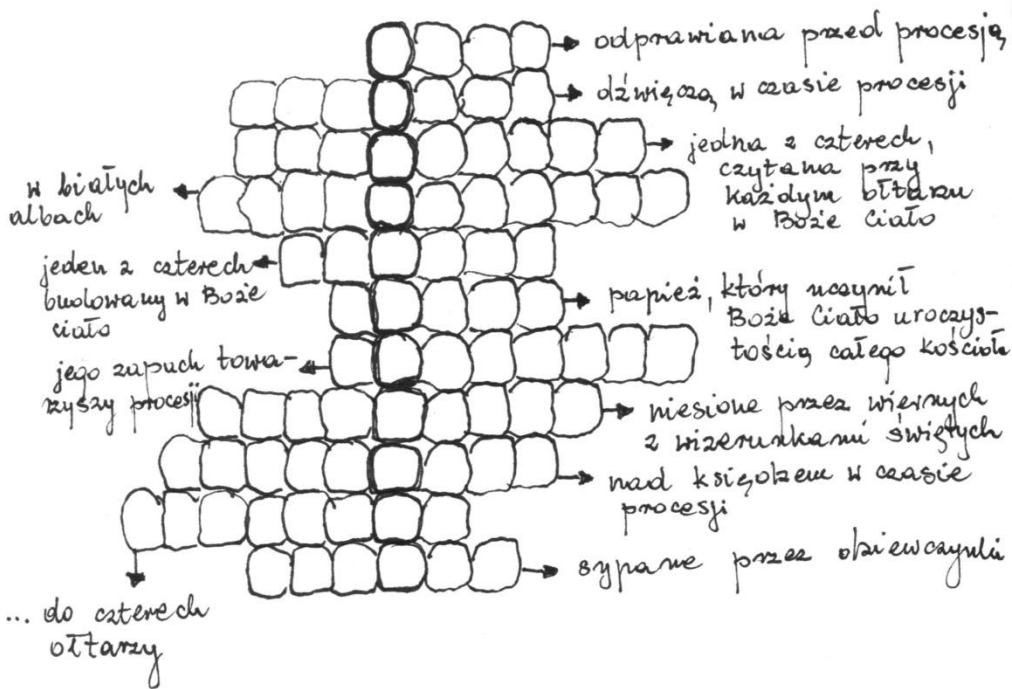 odprawiana przed procesją
dźwięczą w czasie procesji
jedna z czterech,
czytana przy
każdym ołtarzu
w Boże Ciało
w białych
albach
jeden z czterech
budowany w Boże
Ciało
papież, który uczynił
Boże Ciało uroczys-
tością całego Kościoła
jego zapach towa-
rzyszy procesji
niesione przez wiernych
z wizerunkami świętych
nad księdzem w czasie
procesji
sypane przez dziewczynki
... do czterech
ołtarzy